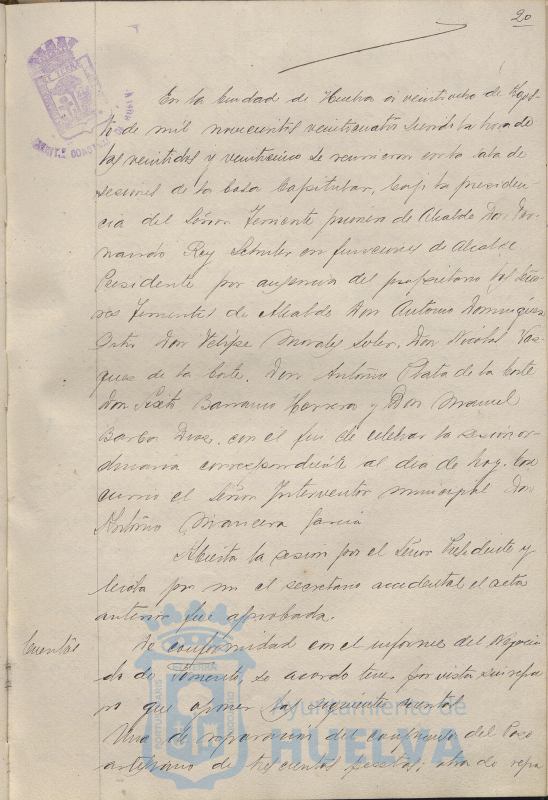 20
En la Ciudad de Huelva a veintiocho de Agos-
to de mil novecientos veinticuatro siendo la hora de
las veintidos y veinticinco se reunieron en la sala de
sesiones de la Casa Capitular, bajo la presiden-
cia del Señor Teniente primero de Alcalde Don Fer-
nando Rey en funciones de Alcalde
Presidente por ausencia del propietario los Seño-
res Tenientes de Alcalde Don Antonio Dominguez
Don Felipe Morales Soler, Don Nicolas Vaz-
quez de la Corte, Don Antonio Plata de la Corte
Don Sixto Barranco Herrera y Don Manuel
Barba Diaz, con el fin de celebrar la sesion or-
dinaria correspondiente al dia de hoy. Con-
currio el Señor Interventor municipal Don
Antonio Mancera Garcia
Abierta la sesion por el Señor Presidente y
leida por mi el secretario accidental el acta
anterior fue aprobada.
Cuentas
De conformidad con el informe del Negocia-
do de , se acordo tener por vista sin repa-
ro que oponer las siguientes cuentas
Una de reparacion del del Pozo
artesiano de trescientas pesetas; otra de repa
PORTUS MARIS
ET TERRÆ
CUSTODIO
Ayuntamiento de
HUELVA